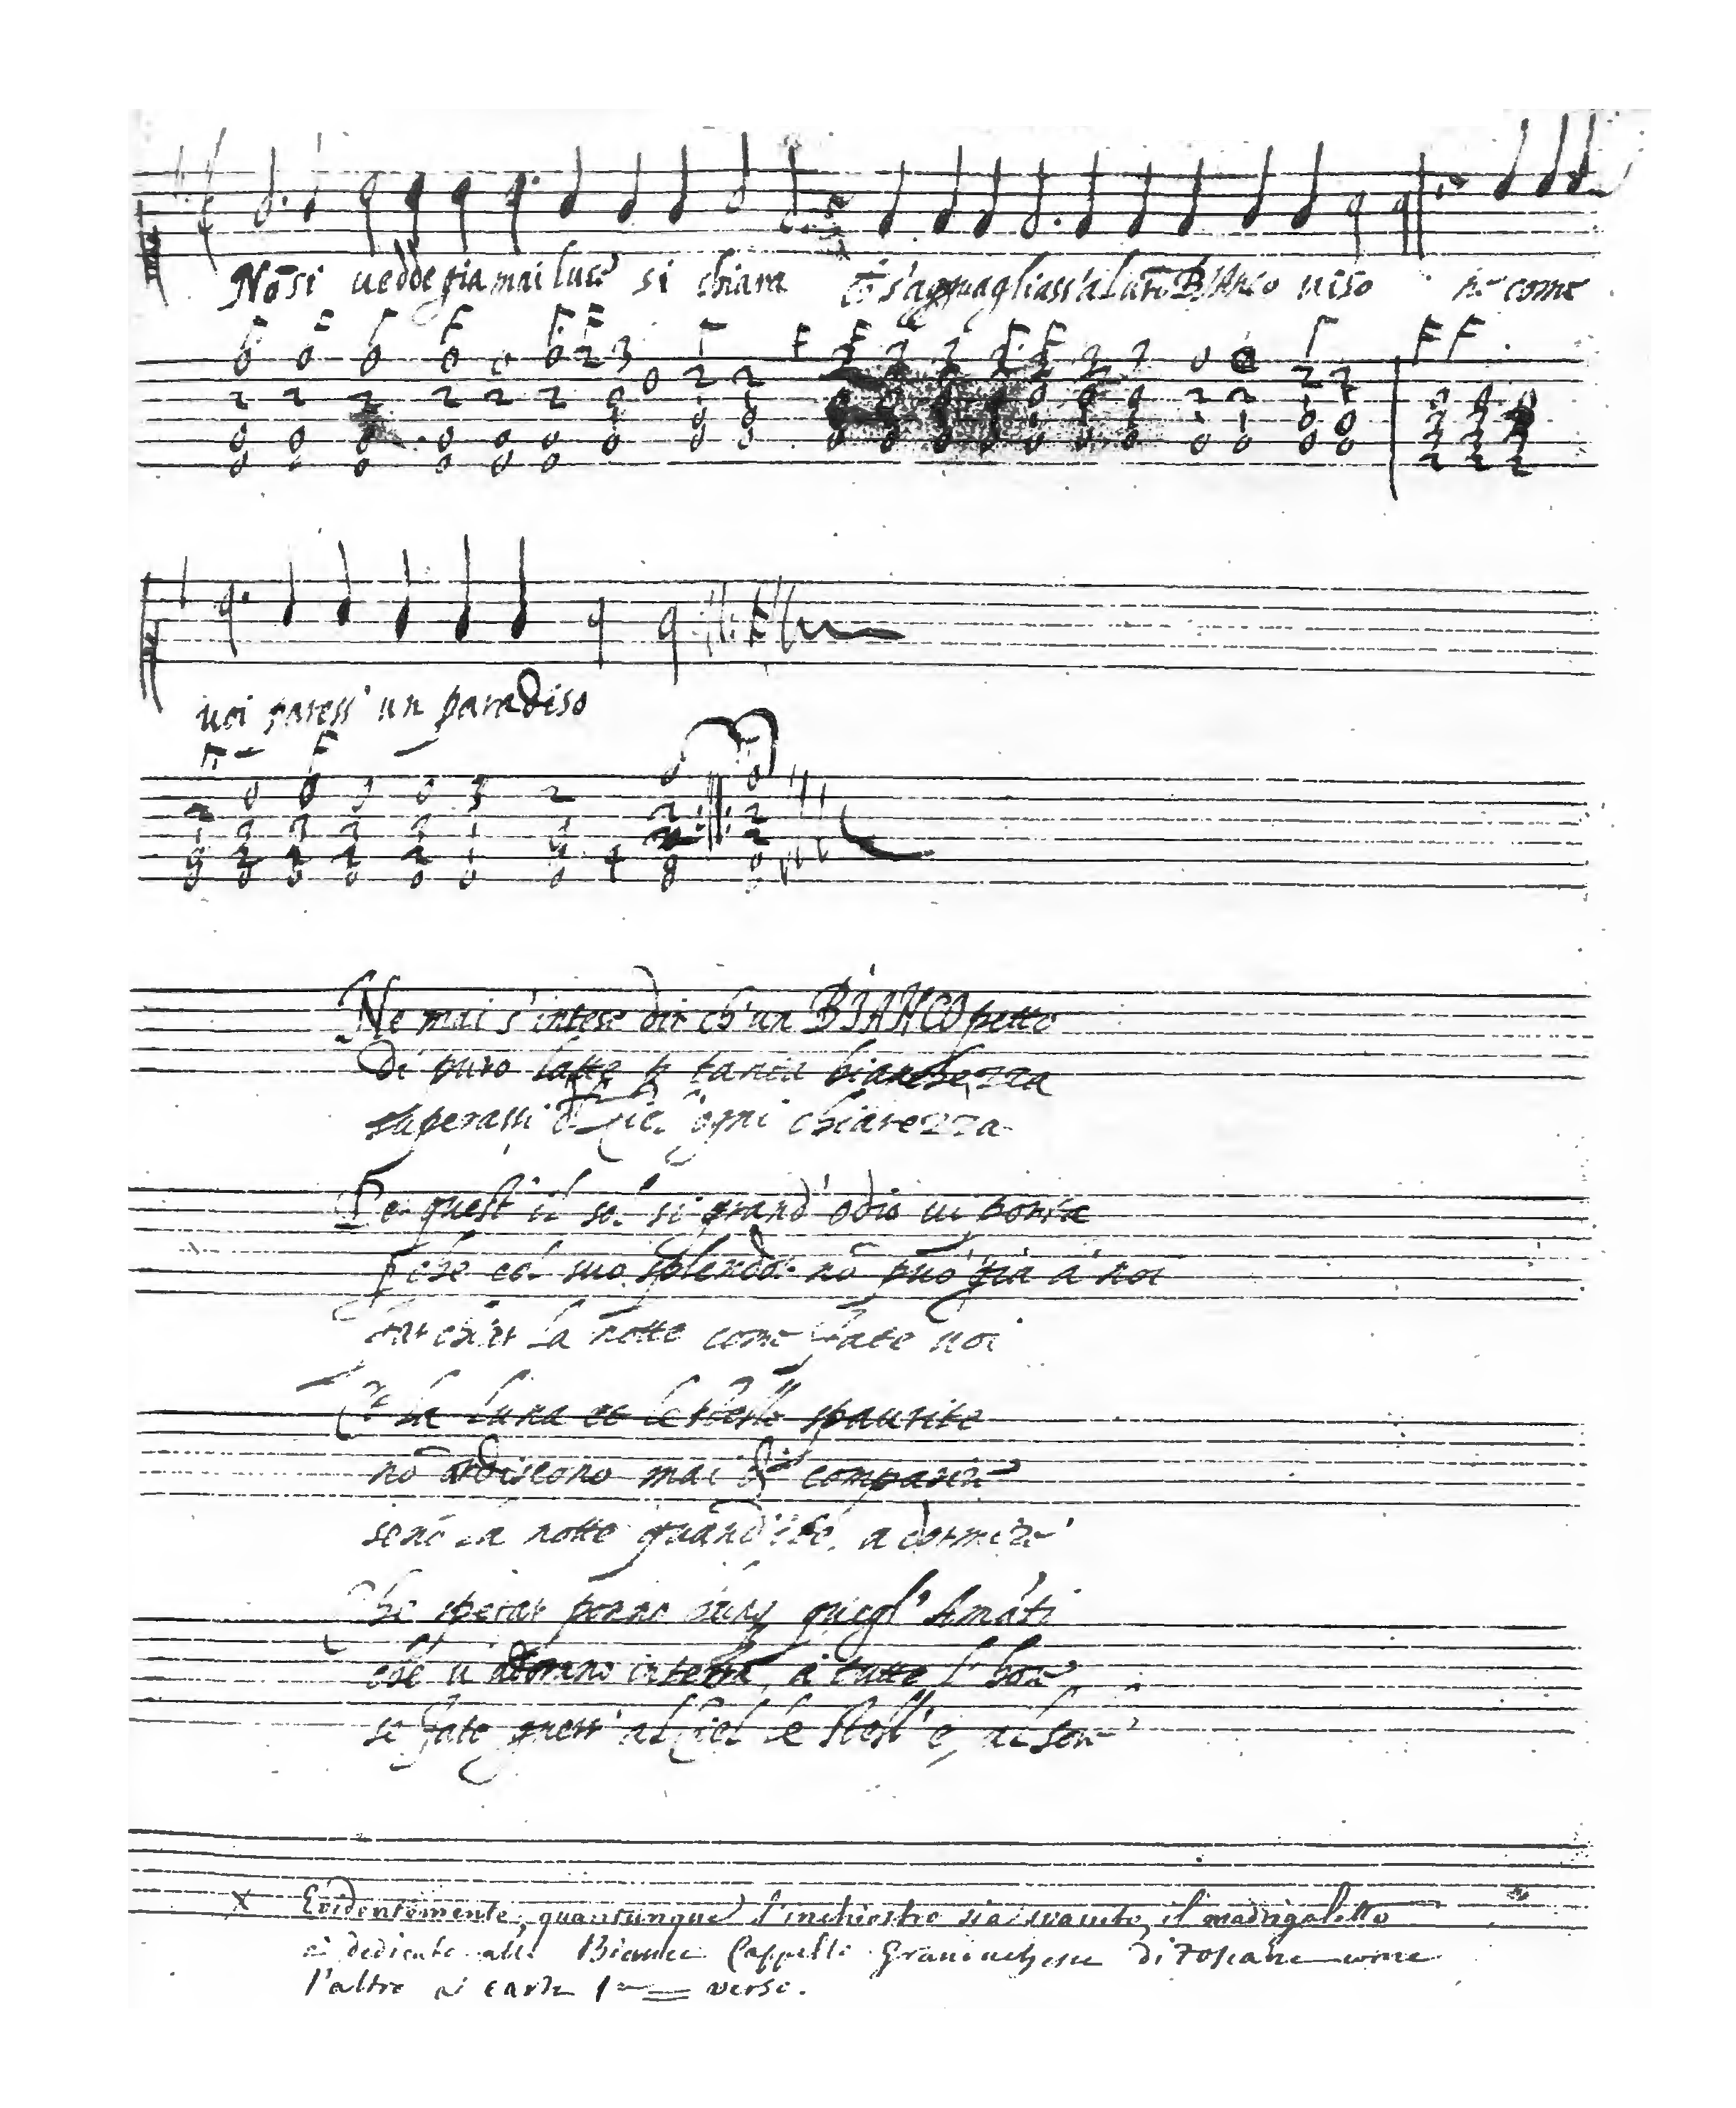 Nō si uedde gia mai luce si chiara s'agguagliass'al BIANCO uiso ne come
uoi paress' un paradiso
Ne mai s'intese dir ch'un BIANCO petto
Di puro latte tanta bianchezza
superassi ogni chiarezza
quest' il sol si grand' odio ui porta
che col suo splendor nō puo gia a noi
la notte come fate uoi
Et la luna et le stelle spaurite
nō ardiscono mai di comparire
senō la notte quand' a dormire
Che sperar ponno quegl' Amāti
che u' adorano in terra, a tutte l' hore
se fate guerr' al Ciel le stell' e, al sole
x Evidentemente, quantunque l'inchiostro sia svanito, il madrigaletto
è dedicato alla Bianca Cappello Granduchessa di Toscana come
l'altro a carte 1 verso.